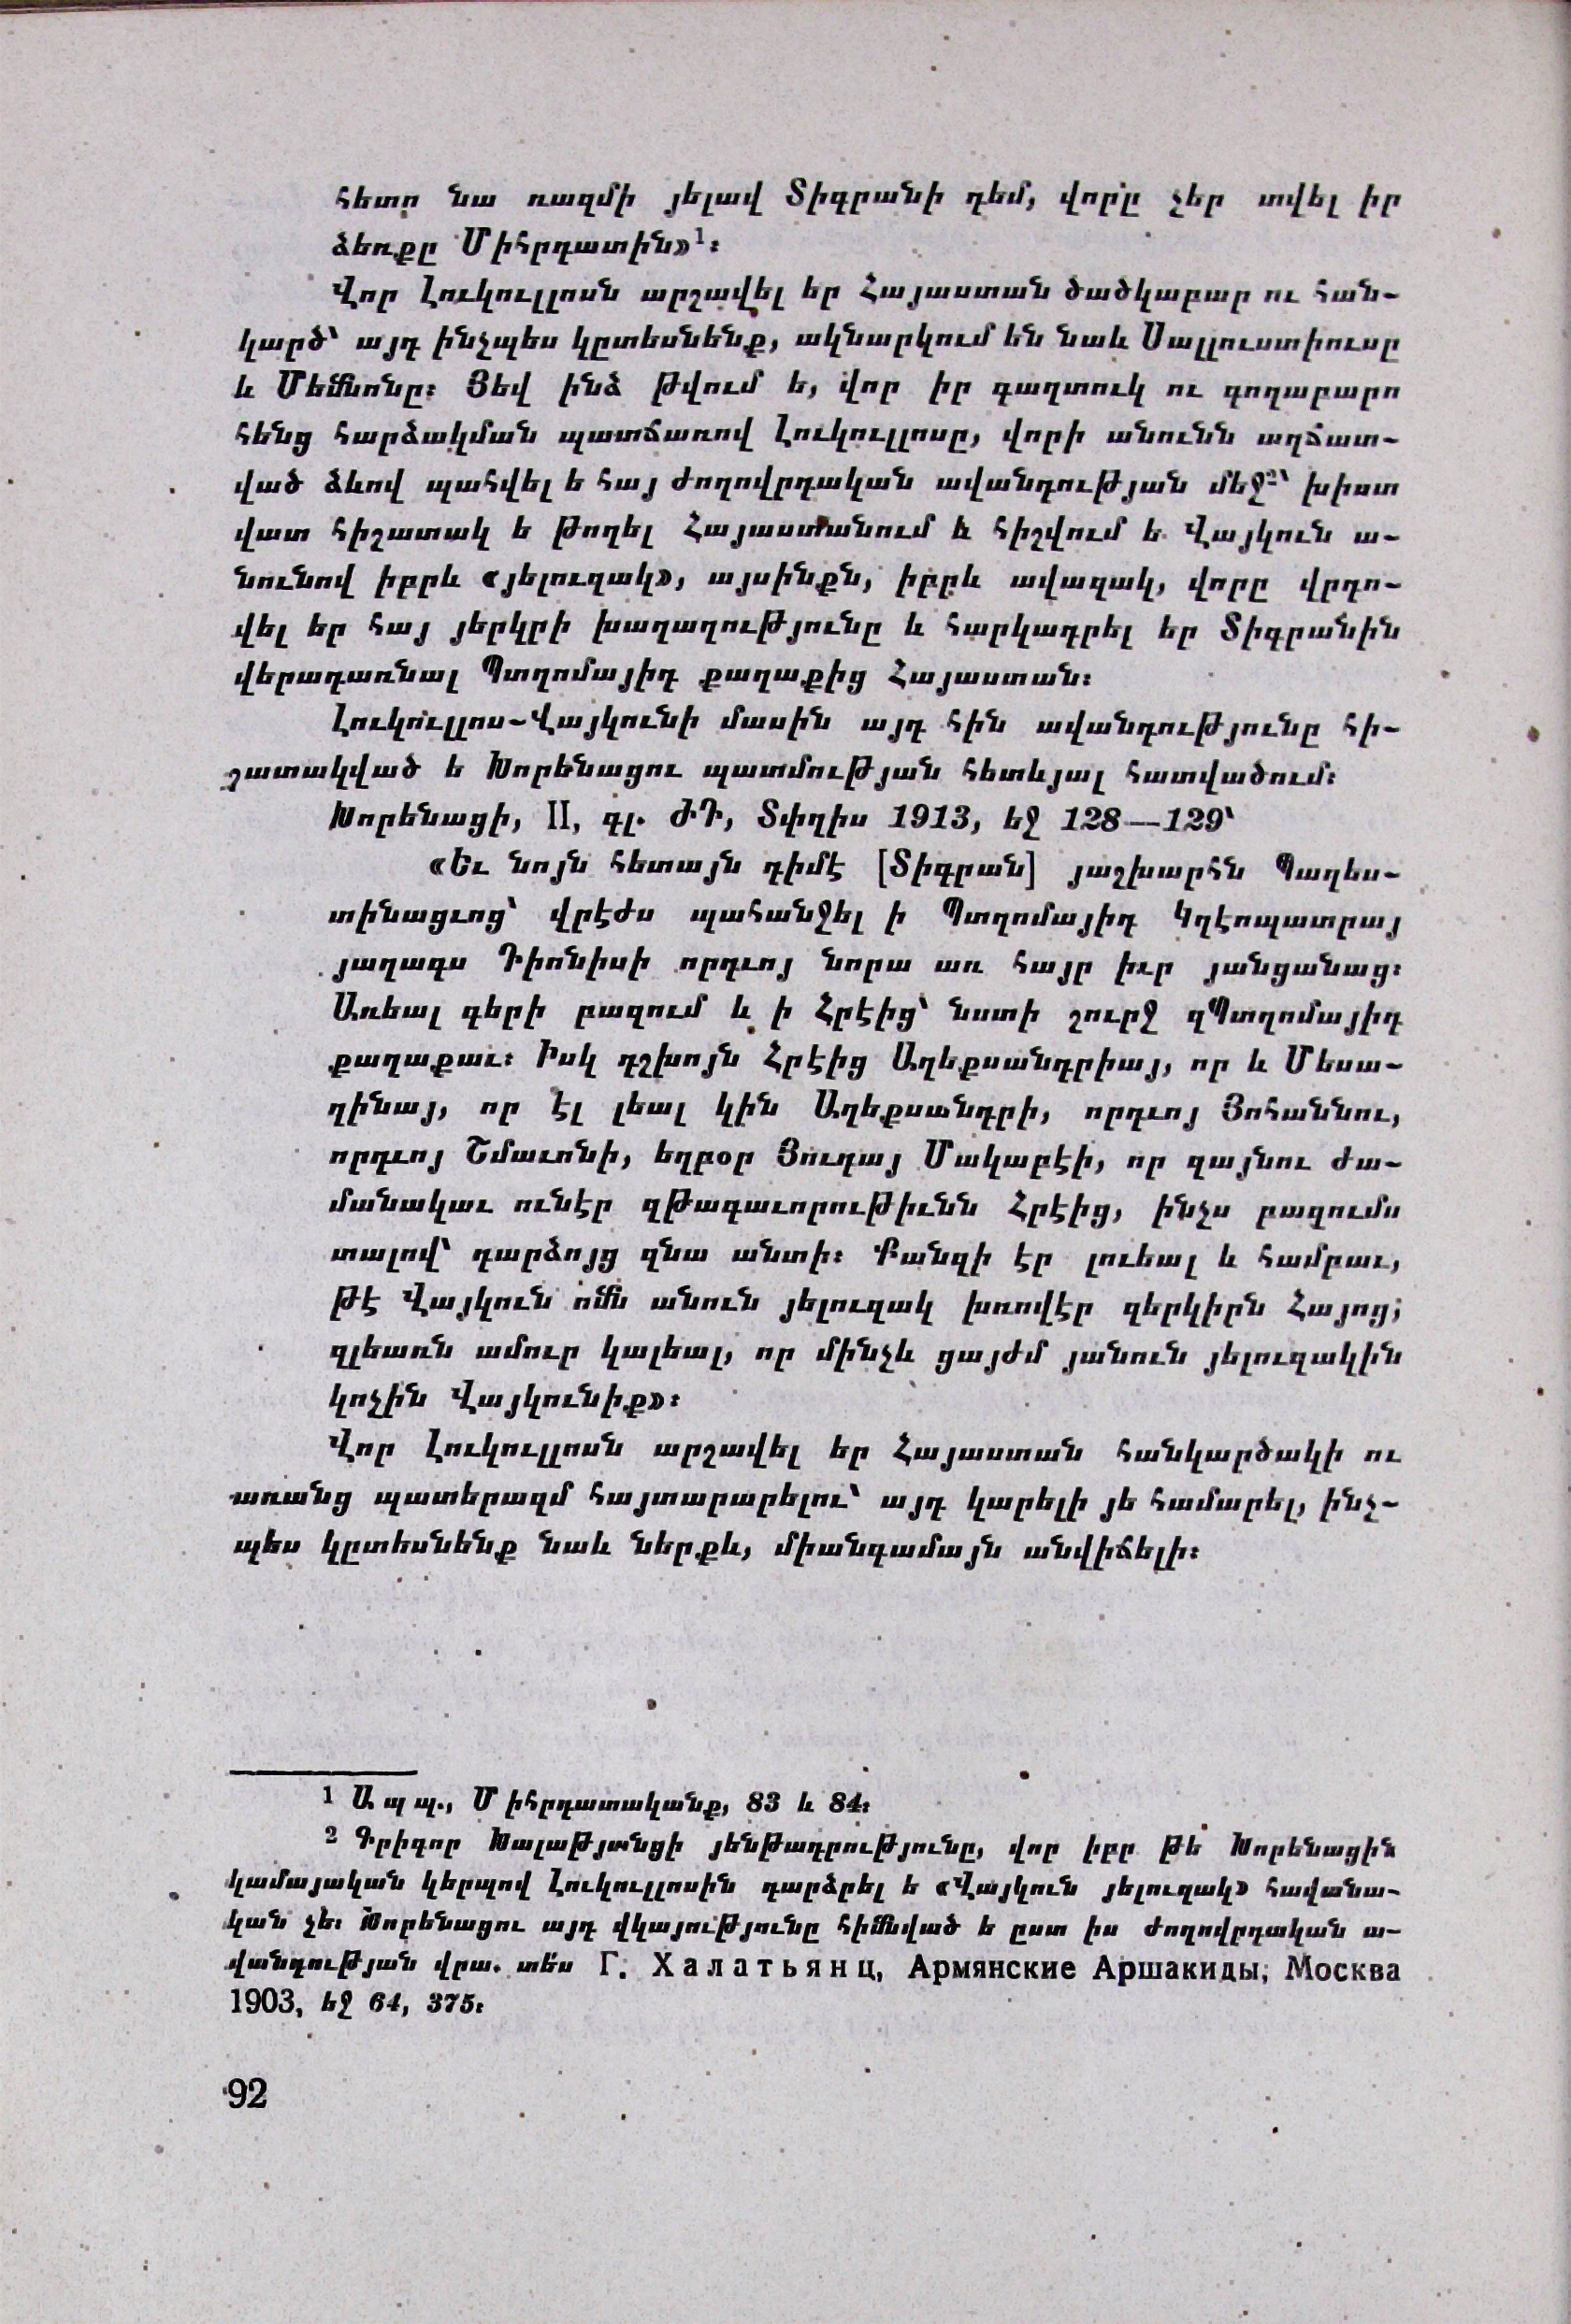 հետո նա ռազմի յելավ Տիգրանի դեմ, վորը չեր տվել իր
ձեռքը Միհրդատին»¹։
Վոր Լուկուլլոսն արշավել եր Հայաստան ծածկաբար ու հան-
կարծ՝ այդ ինչպես կըտեսնենք, ակնարկում են նաև Սալլուստիուսը
և Մեմնոնը։ Յեվ ինձ թվում ե, վոր իր գաղտուկ ու գողաբարո
հենց հարձակման պատճառով Լուկուլլոսը, վորի անունն աղճատ-
ված ձևով պահվել ե հայ ժողովրդական ավանդության մեջ²՝ խիստ
վատ հիշատակ ե թողել Հայաստանում և հիշվում ե Վայկուն ա-
նունով իբրև «յելուզակ», այսինքն, իբրև ավազակ, վորը վրդո-
վել եր հայ յերկրի խաղաղությունը և հարկադրել եր Տիգրանին
վերադառնալ Պտղոմայիդ քաղաքից Հայաստան։
Լուկուլլոս-Վայկունի մասին այդ հին ավանդությունը հի-
շատակված ե Խորենացու պատմության հետևյալ հատվածում։
Խորենացի, II, գլ. ԺԴ, Տփղիս 1913, եջ 128—129՝
«Եւ նոյն հետայն դիմէ [Տիգրան] յաշխարհն Պաղես-
տինացւոց՝ վրէժս պահանջել ի Պտղոմայիդ Կղէոպատրայ
յաղագս Դիոնիսի որդւոյ նորա առ հայր իւր յանցանաց։
Առեալ գերի բազում և ի Հրէից՝ նստի շուրջ զՊտղոմայիդ
քաղաքաւ։ Իսկ դշխոյն Հրէից Աղեքսանդրիայ, որ և Մեսա-
ղինայ, որ էլ լեալ կին Աղեքսանդրի, որդւոյ Յոհաննու,
որդւոյ Շմաւոնի, եղբօր Յուդայ Մակաբէի, որ զայնու ժա-
մանակաւ ունէր զթագաւորութիւնն Հրէից, ինչս բազումս
տալով՝ դարձոյց զնա անտի։ Քանզի էր լուեալ և համբաւ,
թէ Վայկուն ոմն անուն յելուզակ խռովէր զերկիրն Հայոց,
զլեառն ամուր կալեալ, որ մինչև ցայժմ յանուն յելուզակին
կոչին Վայկունիք»։
Վոր Լուկուլլոսն արշավել եր Հայաստան հանկարծակի ու
առանց պատերազմ հայտարարելու՝ այդ կարելի յե համարել, ինչ-
պես կըտեսնենք նաև ներքև, միանգամայն անվիճելի։
1 Ապպ., Միհրդատականք, 83 և 84։
2 Գրիգոր Խալաթյանցի յենթադրությունը, վոր իբր թե Խորենացին
կամայական կերպով Լուկուլլոսին դարձրել ե «Վայկուն յելուզակ» հավանա-
կան չե։ Խորենացու այդ վկայությունը հիմնված ե ըստ իս ժողովրդական ա-
վանդության վրա. տե՛ս Г. Халатьянц, Армянские Аршакиды, Москва
1903, եջ 64, 375։
92